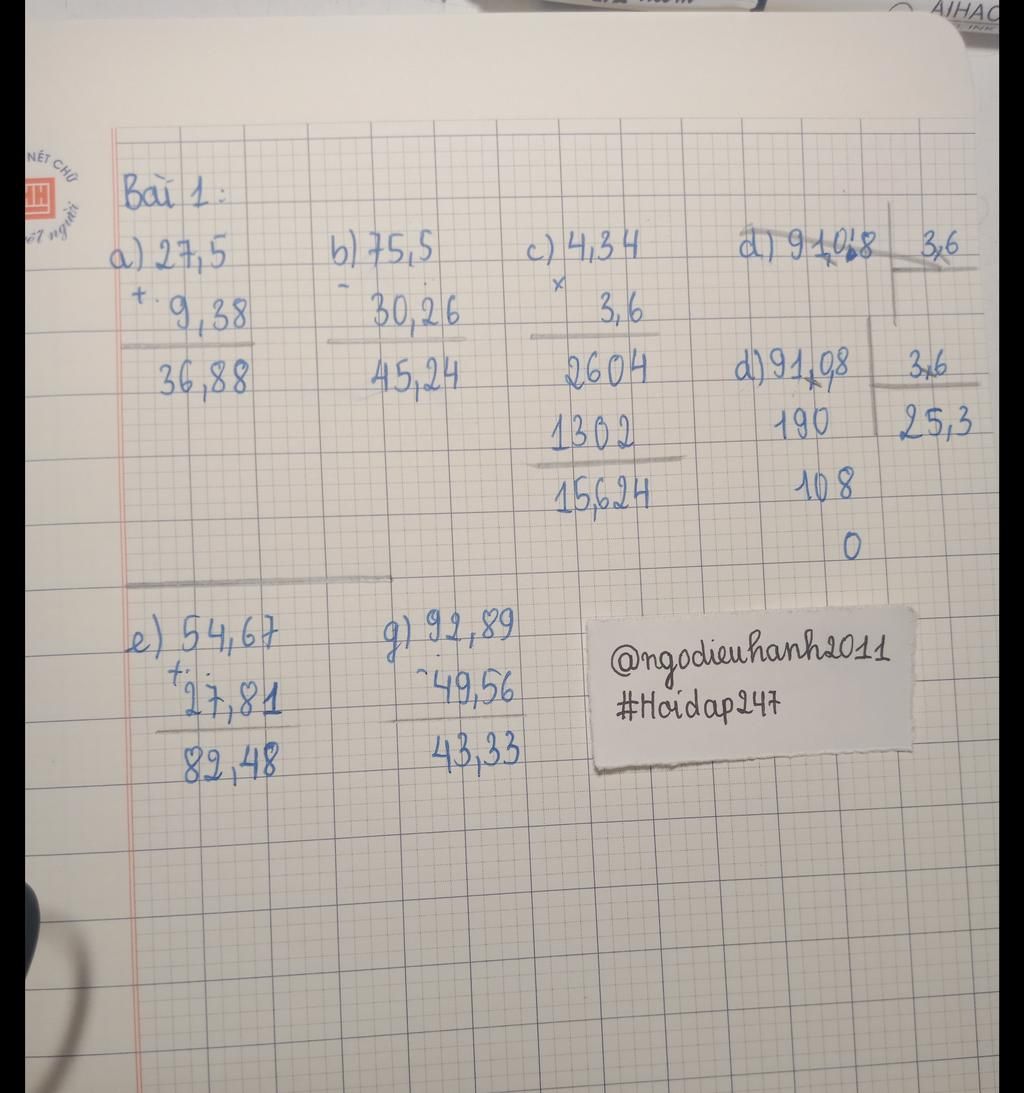 AIHAO
NÉT CHỮ
Bài 1:
a) 27,5
+ 9,38
36,88
b) 75,5
- 30,26
45,24
c) 4,34
× 3,6
2604
1302
15,624
d) 91,08 3,6
d) 91,08 3,6
190 25,3
108
0
e) 54,67
+ 27,81
82,48
g) 92,89
- 49,56
43,33
@ngodieuhanh2011
#Hoidap247